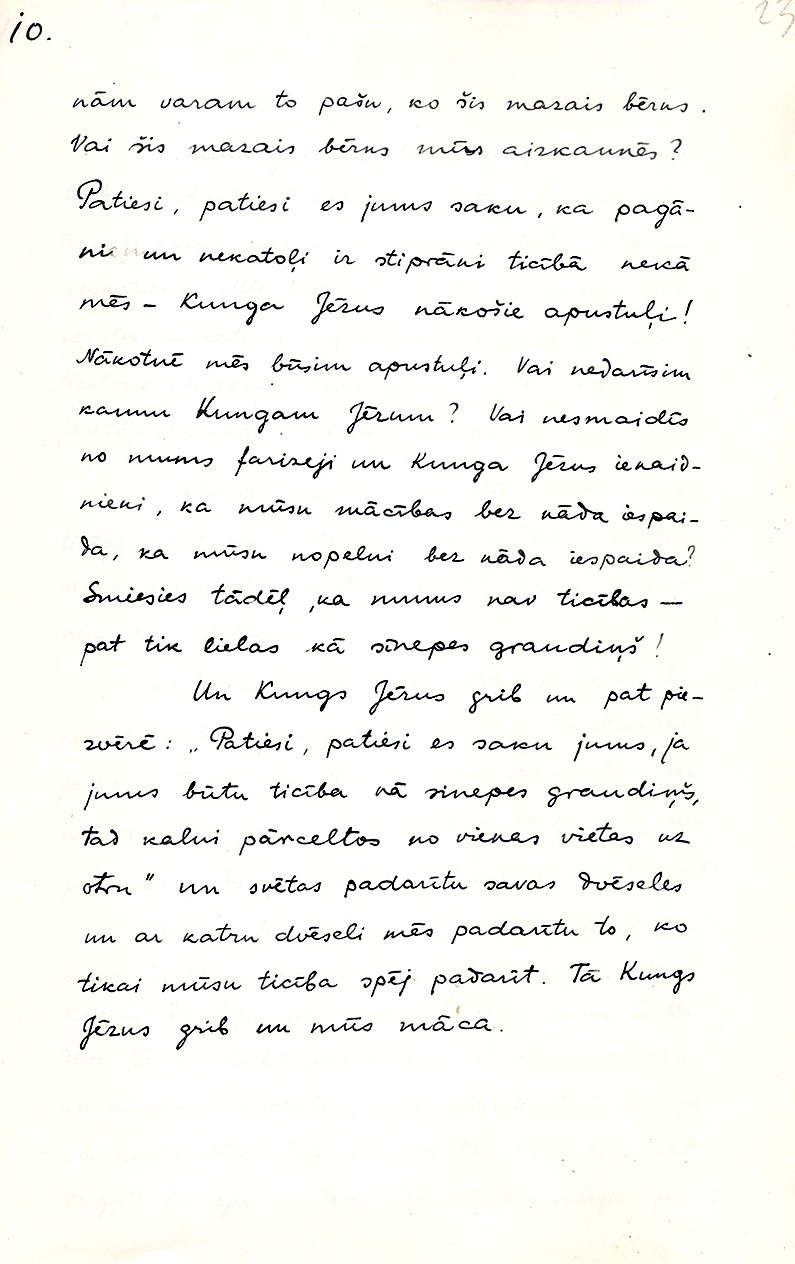 10.
23
nām varam to pašu, ko šis mazais bērns.
Vai šis mazais bērns mūs aizkaunēs?
Patiesi, patiesi es jums saku, ka pagā-
ni un nekatoļi ir stiprāki ticībā nekā
mēs – Kunga Jēzus nākošie apustuļi!
Nākotnē mēs būsim apustuļi. Vai nedarīsim
kaunu Kungam Jēzum? Vai nesmaidīs
no mums farizeji un Kunga Jēzus ienaid-
nieki, ka mūsu mācības bez kāda iespai-
da, ka mūsu nopelni bez kāda iespaida?
Smiesies tādēļ, ka mums nav ticības —
pat tik lielas kā sīnepes graudiņš!
Un Kungs Jēzus grib un pat pie-
zvērē: „Patiesi, patiesi es saku jums, ja
jums būtu ticība kā sinepes graudiņš,
tad kalni pārceltos no vienas vietas uz
otru" un svētas padarītu savas dvēseles
un ar katru dvēseli mēs padarītu to, ko
tikai mūsu ticība spēj padarīt. Tā Kungs
Jēzus grib un mūs māca.